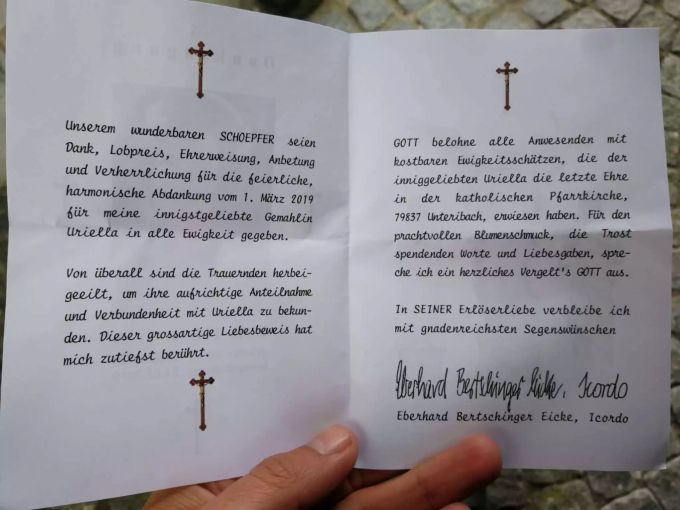 Unserem wunderbaren SCHOEPFER seien
Dank, Lobpreis, Ehrerweisung, Anbetung
und Verherrlichung für die feierliche,
harmonische Abdankung vom 1. März 2019
für meine innigstgeliebte Gemahlin
Uriella in alle Ewigkeit gegeben.
Von überall sind die Trauernden herbei-
geeilt, um ihre aufrichtige Anteilnahme
und Verbundenheit mit Uriella zu bekun-
den. Dieser grossartige Liebesbeweis hat
mich zutiefst berührt.
GOTT belohne alle Anwesenden mit
kostbaren Ewigkeitsschätzen, die der
inniggeliebten Uriella die letzte Ehre
in der katholischen Pfarrkirche,
79837 Unteribach, erwiesen haben. Für den
prachtvollen Blumenschmuck, die Trost
spendenden Worte und Liebesgaben, spre-
che ich ein herzliches Vergelt's GOTT aus.
In SEINER Erlöserliebe verbleibe ich
mit gnadenreichsten Segenswünschen
Eberhard Bertschinger Eicke, Icordo
Eberhard Bertschinger Eicke, Icordo